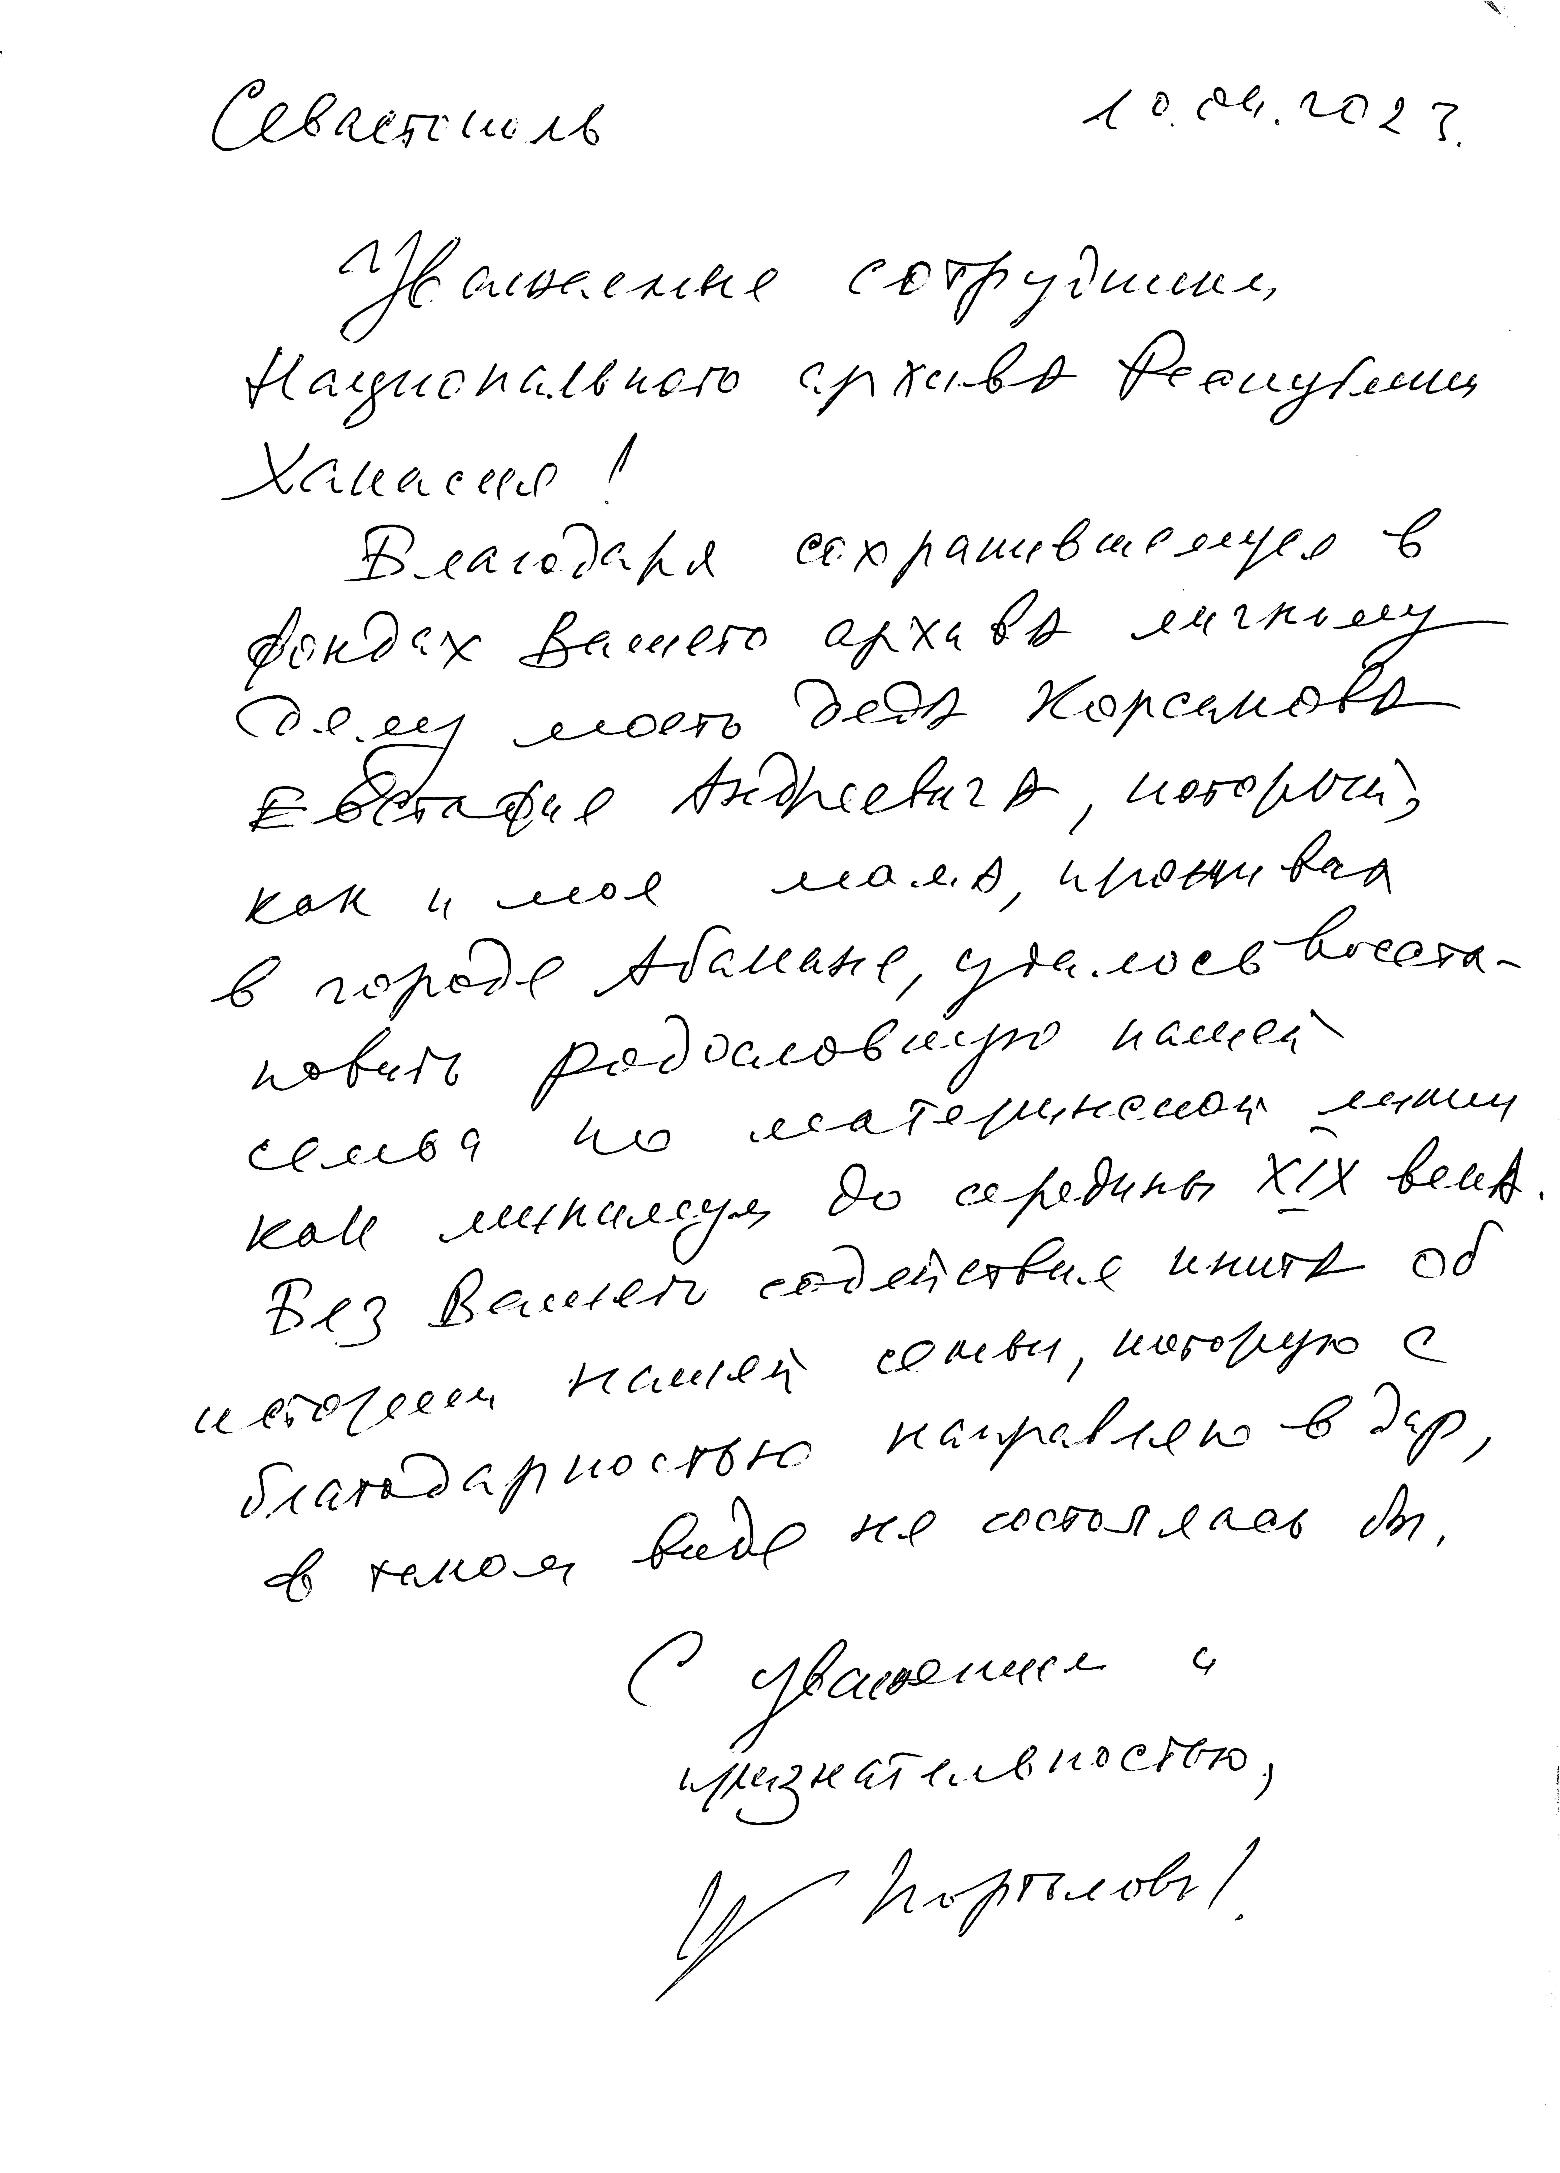 Севастополь 10.04.2023.
Уважаемые сотрудники
Национального архива Республики
Хакасия!
Благодаря сохранившемуся в
фондах Вашего архива личному
делу моего деда Корсакова
Евстафия Андреевича, который,
как и моя мама, проживал
в городе Абакане, удалось восста-
новить родословную нашей
семьи по материнской линии
как минимум до середины XIX века.
Без Вашего содействия книга об
истории нашей семьи, которую с
благодарностью направляю в дар,
в таком виде не состоялась бы.
С уважением и
признательностью,